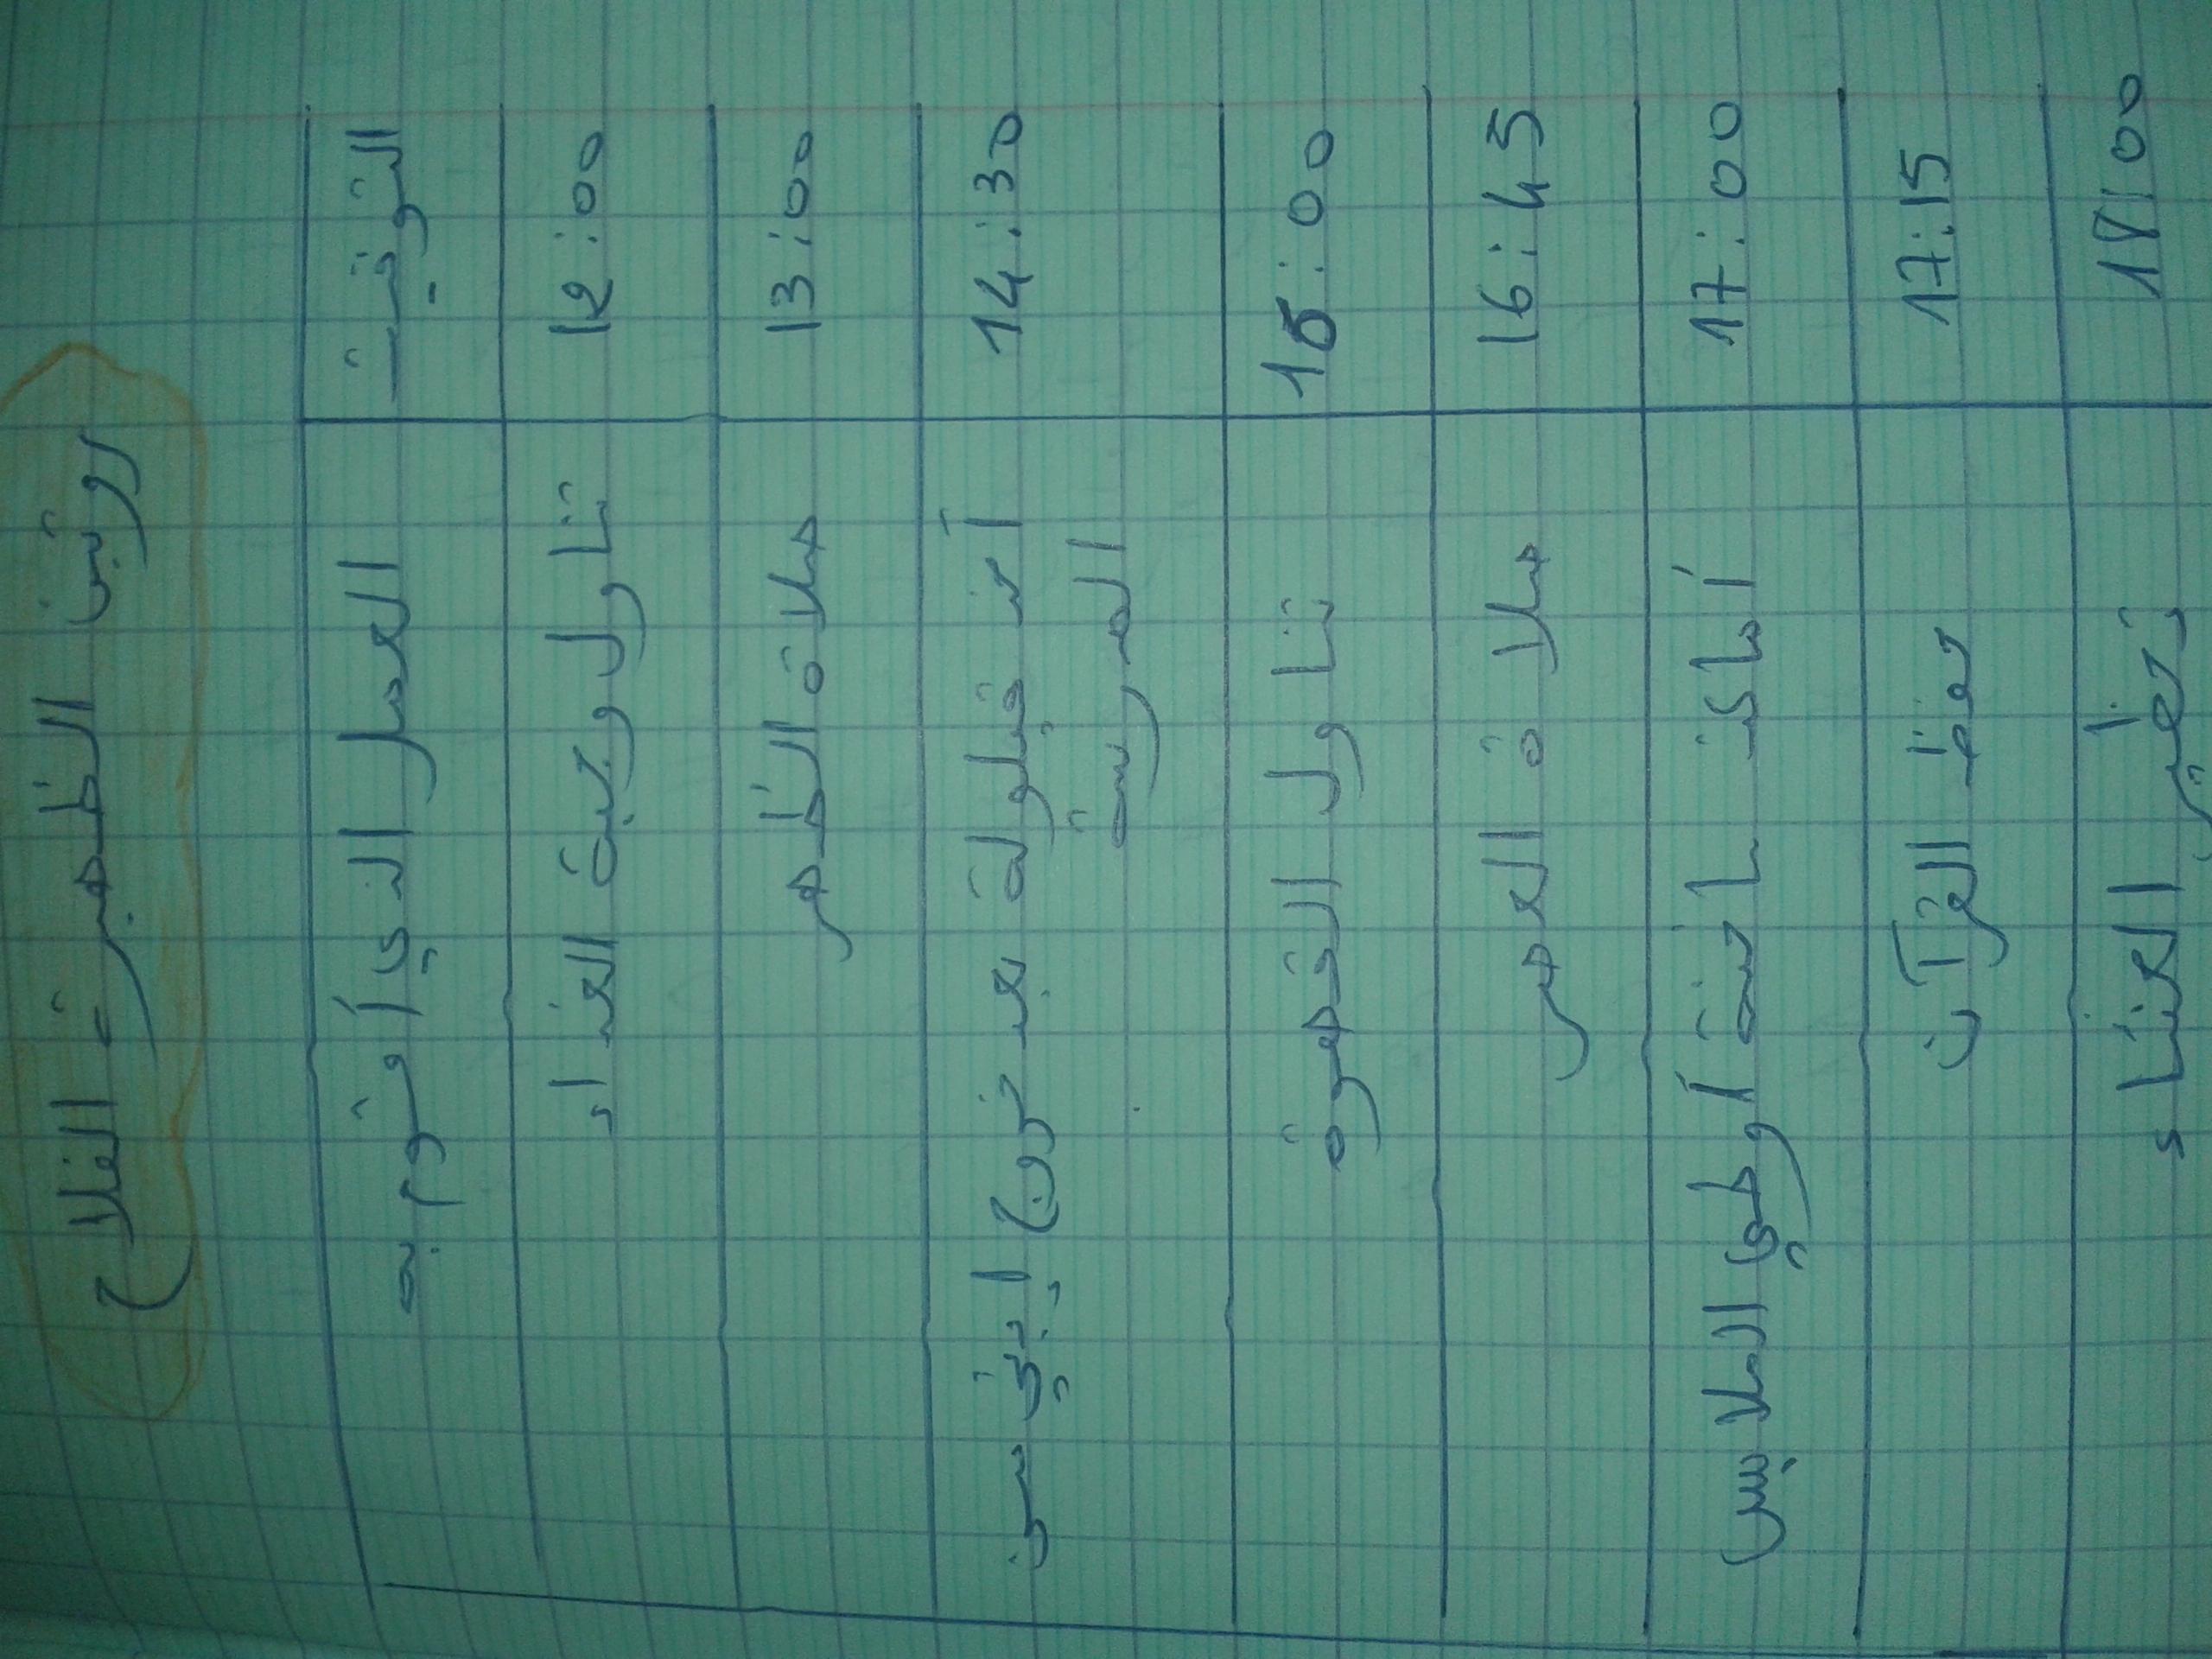 روتين الظهيرة الفلاح
التوقيت العمل الذي أقوم به
12:00 تناول وجبة الغداء
13:00 صلاة الظهر
14:30 أخذ قيلولة بعد خروج إبني من
المدرسة
16:00 تناول القهوة
16:45 صلاة العصر
17:00 أماكنة ساخنة أو طي الملابس
17:15 حفظ القرآن
18:00 تحضير العشاء